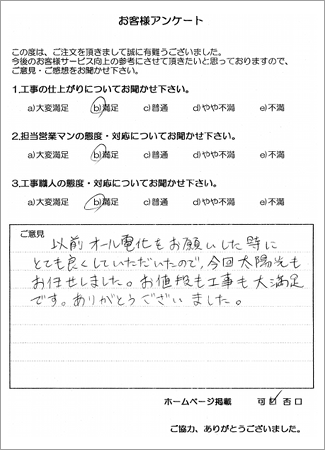 お客様アンケート
この度は、ご注文を頂きまして誠に有難うございました。
今後のお客様サービス向上の参考にさせて頂きたいと思っておりますので、
ご意見・ご感想をお聞かせ下さい。
1.工事の仕上がりについてお聞かせ下さい。
a)大変満足 b)満足 c)普通 d)やや不満 e)不満
2.担当営業マンの態度・対応についてお聞かせ下さい。
a)大変満足 b)満足 c)普通 d)やや不満 e)不満
3.工事職人の態度・対応についてお聞かせ下さい。
a)大変満足 b)満足 c)普通 d)やや不満 e)不満
ご意見
以前オール電化もお願いした時に
とても良くしていただいたので、今回太陽光も
お任せしました。お値段も工事も大満足
です。ありがとうございました。
ホームページ掲載 可 否
ご協力、ありがとうございました。